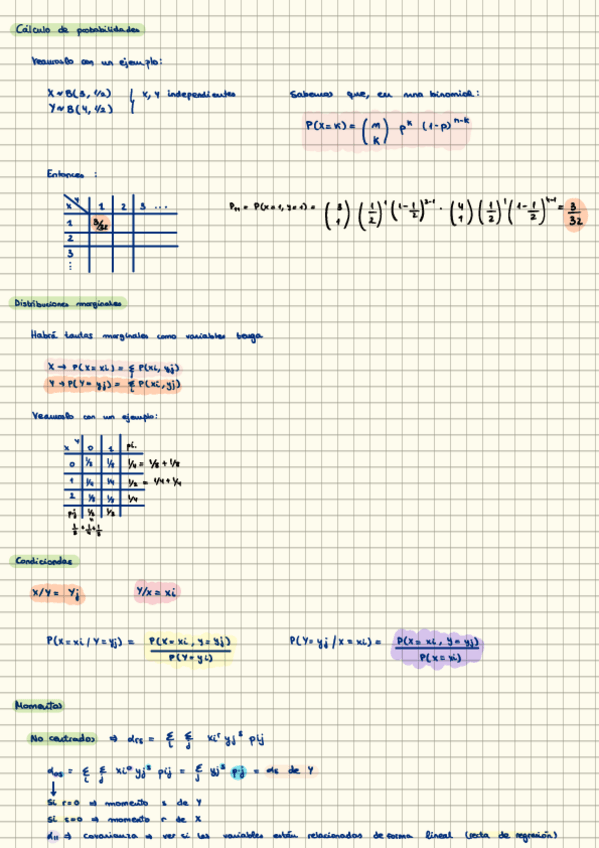 Cálculo de probabilidades
Veamoslo con un ejemplo:
X ~ B(3, 1/2) } X, Y independientes
Y ~ B(4, 1/2)
Sabemos que, en una binomial:
P(X=K) = (n K) p^k (1-p)^{n-k}
Entonces :
X Y 1 2 3 ...
1 3/32
2
3
⋮
P₁₁ = P(X=1, Y=1) = (3 1) (1/2)^1 (1-1/2)^{3-1} · (4 1) (1/2)^1 (1-1/2)^{4-1} = 3/32
Distribuciones marginales
Habrá tantas marginales como variables tenga
X → P(X=xi) = Σj P(xi, yj)
Y → P(Y=yj) = Σi P(xi, yj)
Veamoslo con un ejemplo:
X Y 0 1 pi.
0 1/8 1/8 1/4 = 1/8 + 1/8
1 1/4 1/4 1/2 = 1/4 + 1/4
2 1/8 1/8 1/4
pj 1/2 1/2
1/8 + 1/4 + 1/8
Condicionadas
X/Y = Yj
Y/X = xi
P(X=xi / Y=yj) = P(X=xi, Y=yj) / P(Y=yi)
P(Y=yj / X=xi) = P(X=xi, Y=yj) / P(X=xi)
Momentos
No centrados ⇒ αrs = Σi Σj xi^r yj^s pij
α0s = Σi Σj xi^0 yj^s pij = Σj yj^s p.j = αs de Y
↓
Si r=0 ⇒ momento s de Y
Si s=0 ⇒ momento r de X
α11 ⇒ covarianza → ver si las variables están relacionadas de forma lineal (recta de regresión)